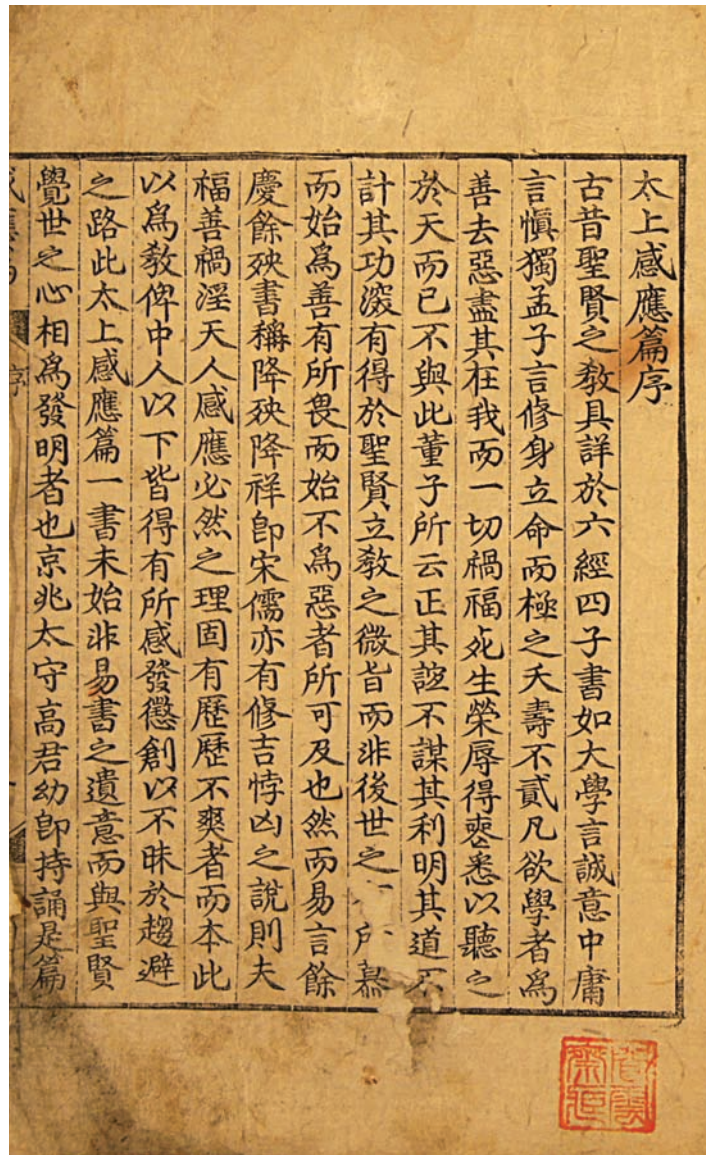 太上感應篇序
古昔聖賢之教具詳於六經四子書如大學言誠意中庸
言慎獨孟子言修身立命而極之夭壽不貳凡欲學者爲
善去惡盡其在我而一切禍福死生榮辱得喪悉以聽之
於天而已不與此董子所云正其誼不謀其利明其道不
計其功深有得於聖賢立教之微旨而非後世之有所慕
而始爲善有所畏而始不爲惡者所可及也然而易言餘
慶餘殃書稱降殃降祥卽宋儒亦有修吉悖凶之說則夫
福善禍淫天人感應必然之理固有歷歷不爽者而本此
以爲教俾中人以下皆得有所感發懲創以不昧於趨避
之路此太上感應篇一書未始非易書之遺意而與聖賢
覺世之心相爲發明者也京兆太守高君幼卽持誦是篇
序